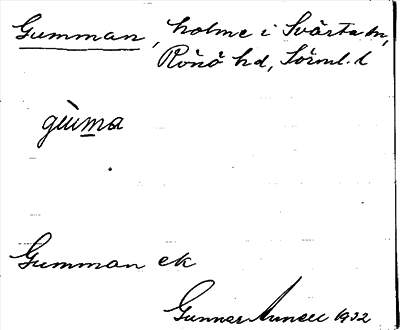 Gumman, holme i Svärta sn,
Rönö hd, Sörml. l
gùma
Gumman ek
Gunnar 1932